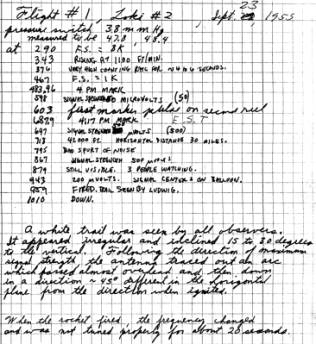 Flight #1, Loki #2 Sept. 23 1955
pressure switch 38 m m Hg
measured to be 42.0, 48.4
at 290 F.S. = 8K
343 RISING AT 1100 FT/MIN.
376 VERY HIGH COUNTING RATE FOR SECONDS.
467 F.S. = 1K
483.96 4 PM MARK
598 SIGNAL STRENGTH MICROVOLTS (50)
603 first marker pulse on second reel
682.9 4:17 PM MARK E.S.T
697 SIGNAL STRENGTH µVOLTS (500)
718 42,000 FT. HORIZONTAL DISTANCE 30 MILES.
795 BAD SPURT OF NOISE
867 SIGNAL STRENGTH 500
879 STILL VISIBLE. 3 PEOPLE WATCHING.
943 200 µVOLTS. SIGNAL CENTERED ON BALLOON.
959 FIRED. TRAIL SEEN BY LUDWIG.
1010 DOWN.
A white trail was seen by all observers.
It appeared irregular and inclined 15 to 20 degrees
to the vertical. Following the direction of maximum
signal strength the antenna traced out an arc
which passed almost overhead and then down
in a direction ~ 45° different in the horizontal
plane from the direction when ignited.
When the rocket fired the frequency changed
and was not tuned properly for about 20 seconds.